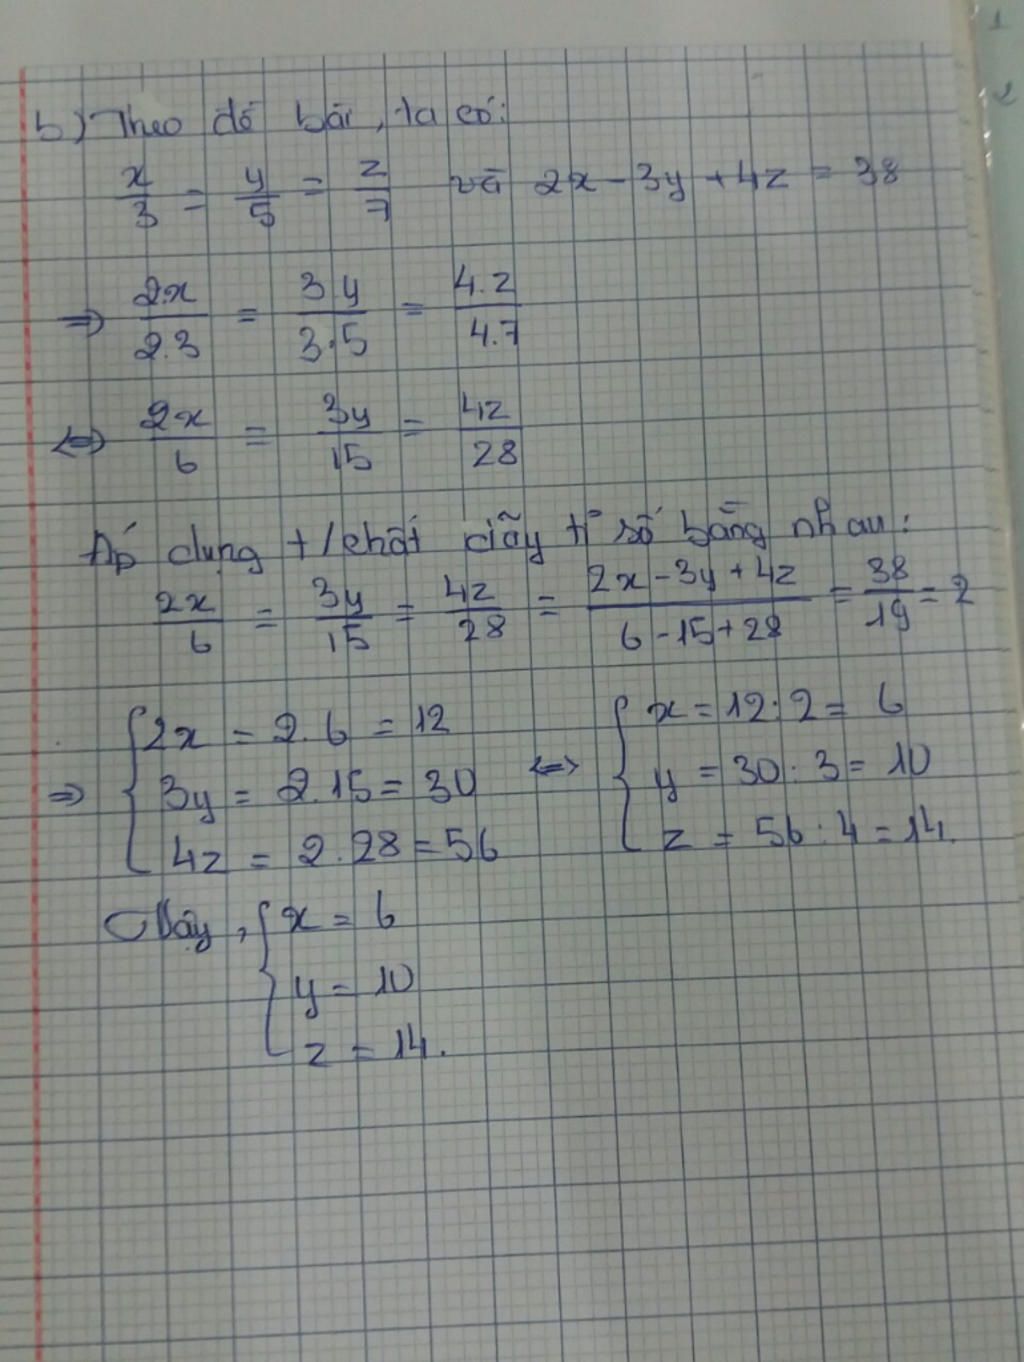 b) Theo đề bài, ta có:
x/3 = y/5 = z/7 và 2x - 3y + 4z = 38
⇒ 2x/2.3 = 3y/3.5 = 4.z/4.7
⇔ 2x/6 = 3y/15 = 4z/28
Áp dụng t/chất dãy tỉ số bằng nhau:
2x/6 = 3y/15 = 4z/28 = (2x - 3y + 4z)/(6 - 15 + 28) = 38/19 = 2
⇒ { 2x = 2.6 = 12 ⇔ { x = 12:2 = 6
3y = 2.15 = 30 y = 30:3 = 10
4z = 2.28 = 56 z = 56:4 = 14.
Vậy, { x = 6
y = 10
z = 14.